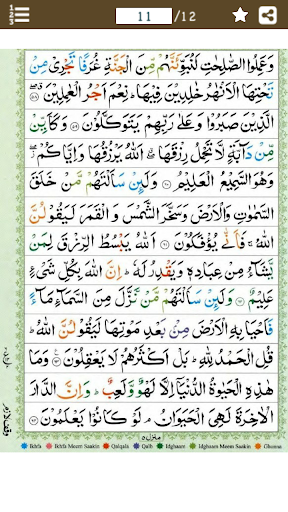 11 /12
وَعَمِلُوا الصّٰلِحٰتِ لَنُبَوِّئَنَّهُمْ مِّنَ الْجَنَّةِ غُرَفًا تَجْرِىْ مِنْ
تَحْتِهَا الْاَنْهٰرُ خٰلِدِيْنَ فِيْهَا ؕ نِعْمَ اَجْرُ الْعٰمِلِيْنَ ۖ ۵۸
الَّذِيْنَ صَبَرُوْا وَعَلٰى رَبِّهِمْ يَتَوَكَّلُوْنَ ۵۹ وَكَاَيِّنْ
مِّنْ دَآبَّةٍ لَّا تَحْمِلُ رِزْقَهَا ۖ اَللّٰهُ يَرْزُقُهَا وَاِيَّاكُمْ ۖ
وَهُوَ السَّمِيْعُ الْعَلِيْمُ ۶۰ وَلَئِنْ سَاَلْتَهُمْ مَّنْ خَلَقَ
السَّمٰوٰتِ وَالْاَرْضَ وَسَخَّرَ الشَّمْسَ وَ الْقَمَرَ لَيَقُوْلُنَّ
اللّٰهُ ۚ فَاَنّٰى يُؤْفَكُوْنَ ۶۱ اَللّٰهُ يَبْسُطُ الرِّزْقَ لِمَنْ
يَّشَآءُ مِنْ عِبَادِهٖ وَيَقْدِرُ لَهٗ ؕ اِنَّ اللّٰهَ بِكُلِّ شَىْءٍ
عَلِيْمٌ ۶۲ وَلَئِنْ سَاَلْتَهُمْ مَّنْ نَّزَّلَ مِنَ السَّمَآءِ مَآءً
فَاَحْيَا بِهِ الْاَرْضَ مِنْۢ بَعْدِ مَوْتِهَا لَيَقُوْلُنَّ اللّٰهُ ؕ
قُلِ الْحَمْدُ لِلّٰهِ ؕ بَلْ اَكْثَرُهُمْ لَا يَعْقِلُوْنَ ۶۳ وَمَا
هٰذِهِ الْحَيٰوةُ الدُّنْيَاۤ اِلَّا لَهْوٌ وَّلَعِبٌ ؕ وَاِنَّ الدَّارَ
الْاٰخِرَةَ لَهِىَ الْحَيَوَانُ ۘ لَوْ كَانُوْا يَعْلَمُوْنَ ۶۴
منزل ۵
Ikhfa Ikhfa Meem Saakin Qalqala Qalb Idghaam Idghaam Meem Saakin Ghunna